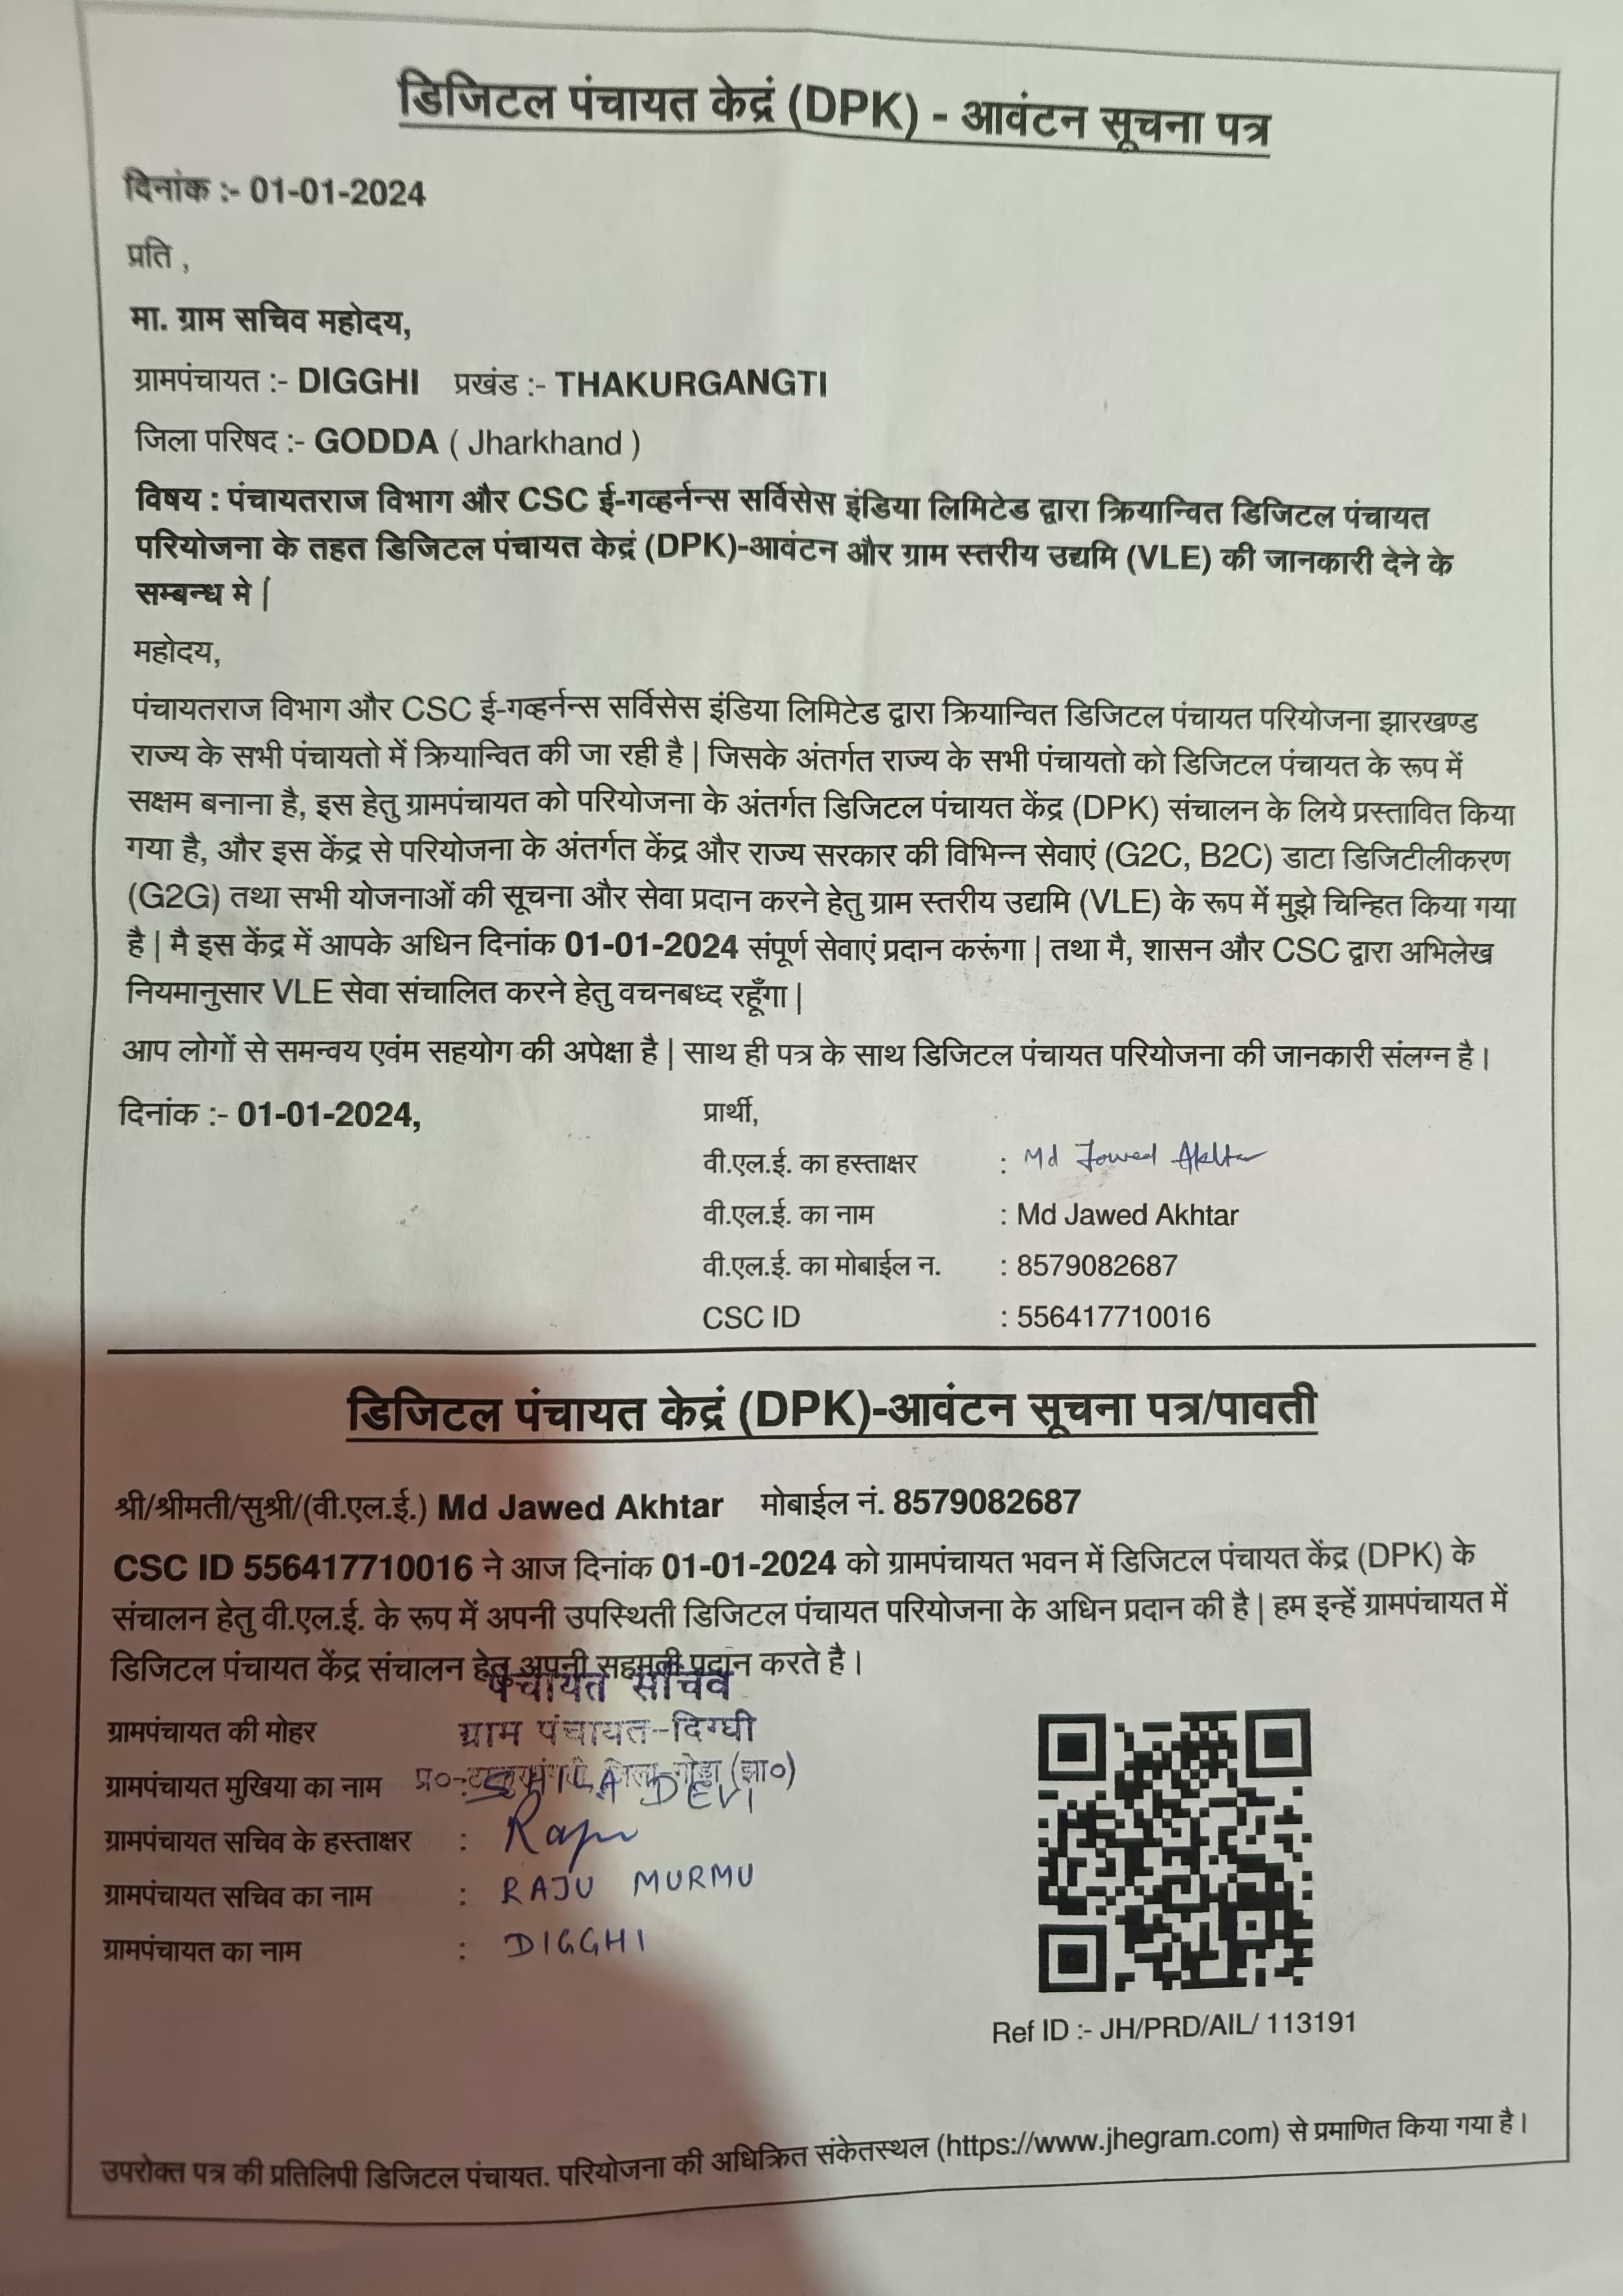 डिजिटल पंचायत केद्रं (DPK) - आवंटन सूचना पत्र
दिनांक :- 01-01-2024
प्रति ,
मा. ग्राम सचिव महोदय,
ग्रामपंचायत :- DIGGHI प्रखंड :- THAKURGANGTI
जिला परिषद :- GODDA ( Jharkhand )
विषय : पंचायतराज विभाग और CSC ई-गव्हर्नन्स सर्विसेस इंडिया लिमिटेड द्वारा क्रियान्वित डिजिटल पंचायत
परियोजना के तहत डिजिटल पंचायत केद्रं (DPK)-आवंटन और ग्राम स्तरीय उद्यमि (VLE) की जानकारी देने के
सम्बन्ध मे |
महोदय,
पंचायतराज विभाग और CSC ई-गव्हर्नन्स सर्विसेस इंडिया लिमिटेड द्वारा क्रियान्वित डिजिटल पंचायत परियोजना झारखण्ड
राज्य के सभी पंचायतो में क्रियान्वित की जा रही है | जिसके अंतर्गत राज्य के सभी पंचायतो को डिजिटल पंचायत के रूप में
सक्षम बनाना है, इस हेतु ग्रामपंचायत को परियोजना के अंतर्गत डिजिटल पंचायत केंद्र (DPK) संचालन के लिये प्रस्तावित किया
गया है, और इस केंद्र से परियोजना के अंतर्गत केंद्र और राज्य सरकार की विभिन्न सेवाएं (G2C, B2C) डाटा डिजिटीलीकरण
(G2G) तथा सभी योजनाओं की सूचना और सेवा प्रदान करने हेतु ग्राम स्तरीय उद्यमि (VLE) के रूप में मुझे चिन्हित किया गया
है | मै इस केंद्र में आपके अधिन दिनांक 01-01-2024 संपूर्ण सेवाएं प्रदान करूंगा | तथा मै, शासन और CSC द्वारा अभिलेख
नियमानुसार VLE सेवा संचालित करने हेतु वचनबध्द रहूँगा |
आप लोगों से समन्वय एवंम सहयोग की अपेक्षा है | साथ ही पत्र के साथ डिजिटल पंचायत परियोजना की जानकारी संलग्न है।
दिनांक :- 01-01-2024,
प्रार्थी,
वी.एल.ई. का हस्ताक्षर : Md Jawed Akhtar
वी.एल.ई. का नाम : Md Jawed Akhtar
वी.एल.ई. का मोबाईल न. : 8579082687
CSC ID : 556417710016
डिजिटल पंचायत केद्रं (DPK)-आवंटन सूचना पत्र/पावती
श्री/श्रीमती/सुश्री/(वी.एल.ई.) Md Jawed Akhtar मोबाईल नं. 8579082687
CSC ID 556417710016 ने आज दिनांक 01-01-2024 को ग्रामपंचायत भवन में डिजिटल पंचायत केंद्र (DPK) के
संचालन हेतु वी.एल.ई. के रूप में अपनी उपस्थिती डिजिटल पंचायत परियोजना के अधिन प्रदान की है | हम इन्हें ग्रामपंचायत में
डिजिटल पंचायत केंद्र संचालन हेतु अपनी सहमती प्रदान करते है।
पंचायत सचिव
ग्रामपंचायत की मोहर ग्राम पंचायत-दिग्घी
प्र०-ठाकुरगंगटी, जिला-गोड्डा (झा०)
ग्रामपंचायत मुखिया का नाम : SHILA DEVI
ग्रामपंचायत सचिव के हस्ताक्षर : Raju
ग्रामपंचायत सचिव का नाम : RAJU MURMU
ग्रामपंचायत का नाम : DIGGHI
Ref ID :- JH/PRD/AIL/ 113191
उपरोक्त पत्र की प्रतिलिपी डिजिटल पंचायत. परियोजना की अधिक्रित संकेतस्थल (https://www.jhegram.com) से प्रमाणित किया गया है।